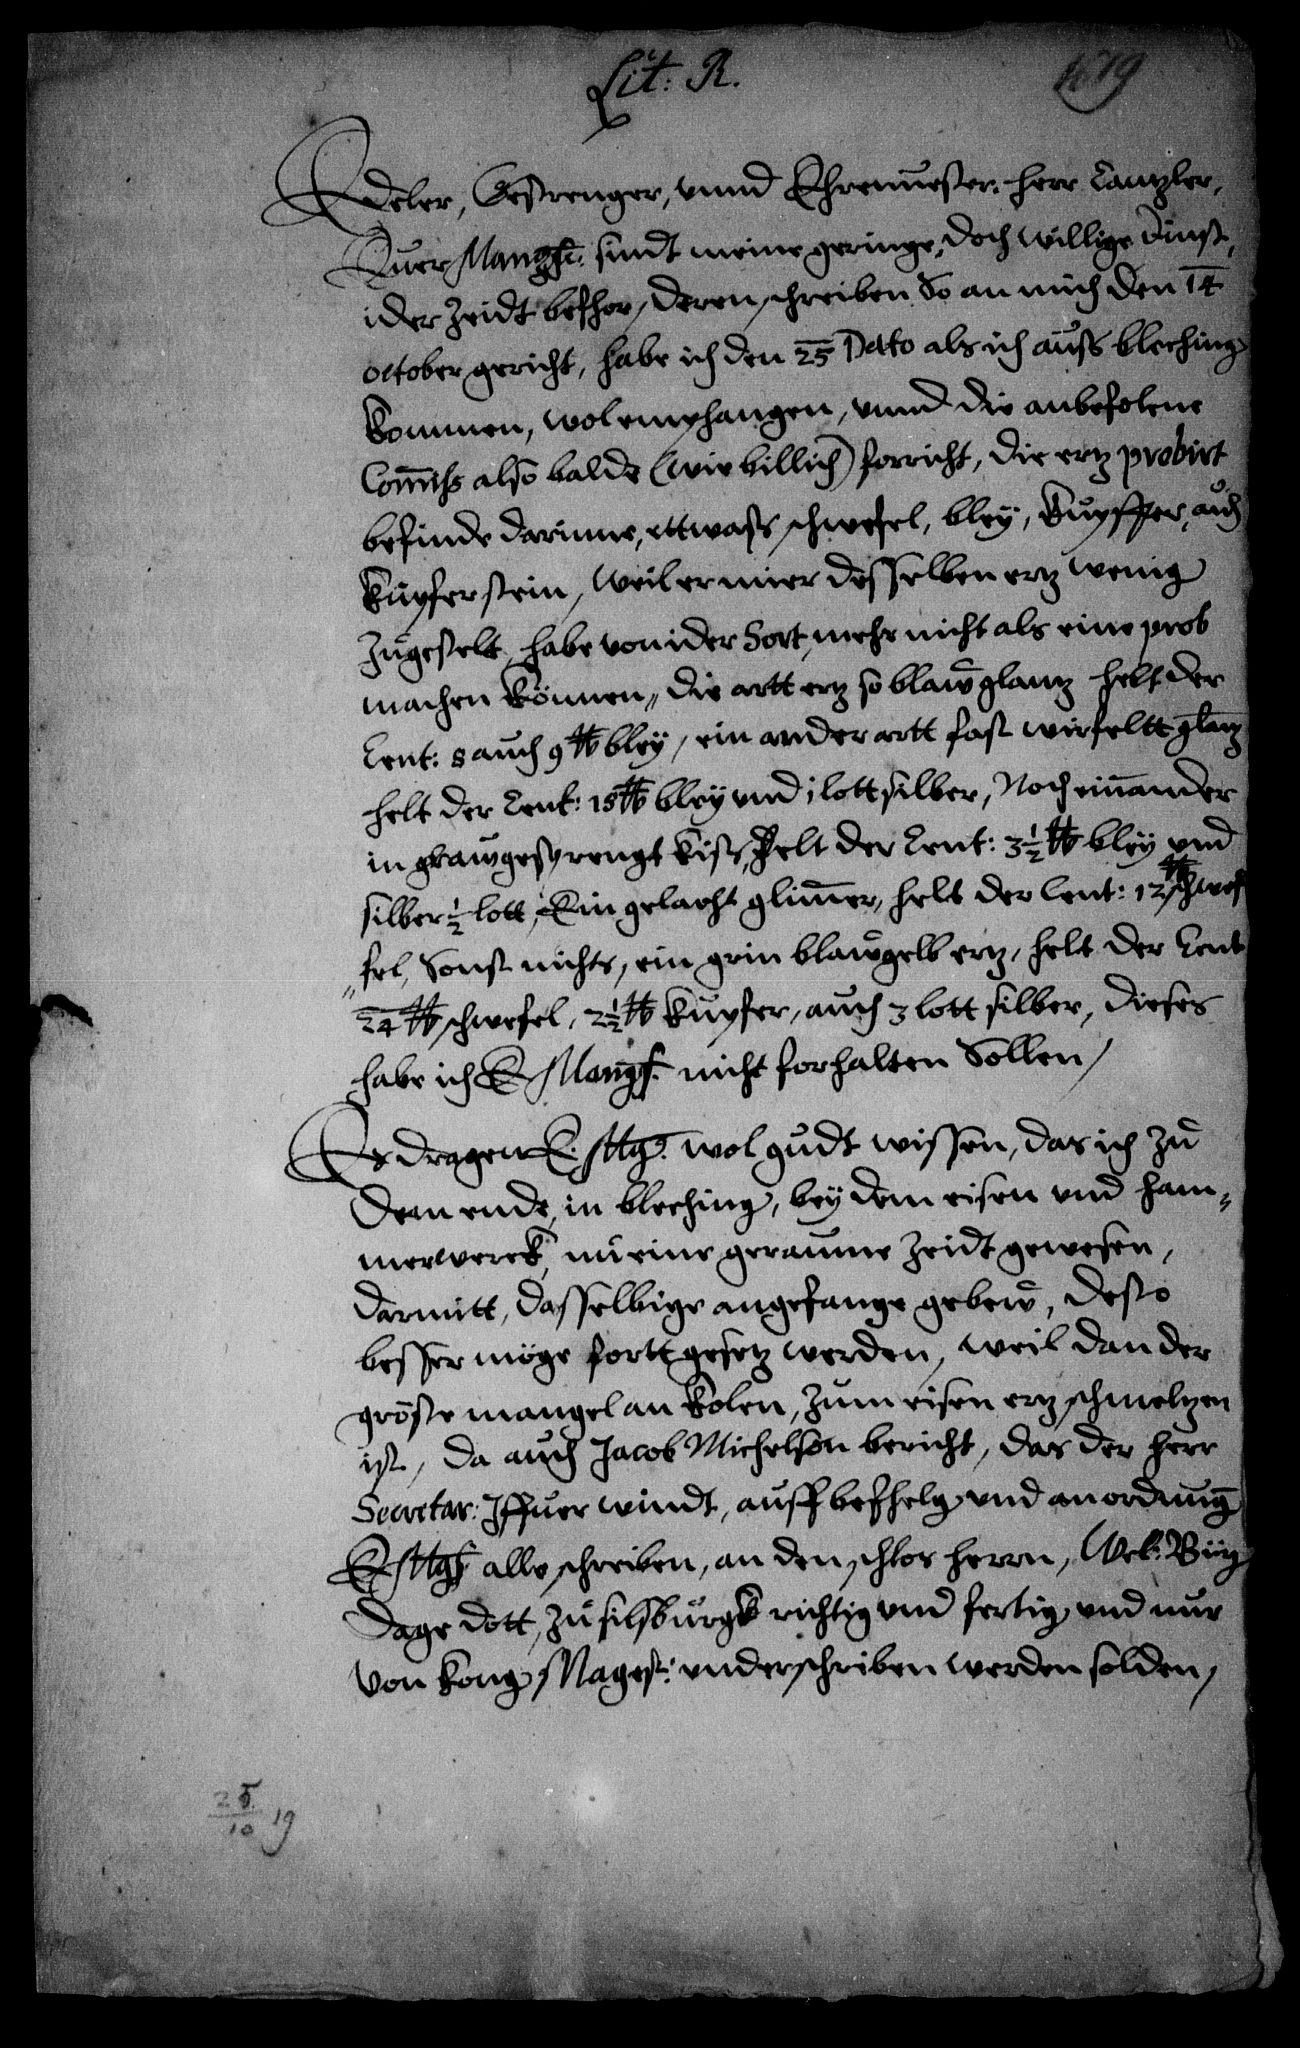 Lit: R.
1619
Edeler, Gestrenger, vnnd Ehrenuester herr Cantzler,
Euer Mangf: sindt meine geringe, doch willige dinst,
ider Zeidt befhor, deren schreiben So an mich den 14
october gericht, habe ich den 25 Dato als ich auss bleching
kommen, wol emphangen, vnnd die anbefolene
Comiss also balde (wie billich) forricht, die ertz probirt
befinde darinne, ettwass schwefel, bley, kupffer, auch
kupferstein, weil er mier desselben ertz wenig
zugestelt, habe von ider Sort, mehr nicht als eine prob
machen können, die artt ertz so blaw glantz helt der
Cent: 8 auch 9 ℔ bley, ein ander artt fast wirfeltt glantz
helt der Cent: 15 ℔ bley vnd 1 lott silber, Noch ein ander
in graw gesprengt kiss, helt der Cent: 3 1/2 ℔ bley vnd
silber 1/2 lott, Ein gelacht glimer, helt der Cent: 12 ℔ schwef
fel, Sonst nichts, ein grin blaw gelb ertz, helt der Cent
24 ℔ schwefel, 2 1/2 ℔ kupfer, auch 3 lott silber, dieses
habe ich E Mangf. nicht forhalten Sollen,
Es dragen E. Mgf. wol gudt wissen, das ich zu
dem ende, in bleching, bey dem eisen vnd ham¬
merwerck, nu eine geraume Zeidt gewesen,
darmitt, dasselbige angefange gebew, desto
besser möge fortt gesetz werden, weil dan der
gröste mangel an kolen, zum eisen ertz schmeltzen
ist, da auch Jacob Michelson bericht, das der herr
Secretar: Iffuer windt, auff befhelg vnd anordnung
E Mgf alle schreiben, an den schlos herrn, Wel:
dage dott, zu silsburgk richtig vnd fertig, vnd nur
von kong: Magest: vnderschriben werden solden,
25/10 19